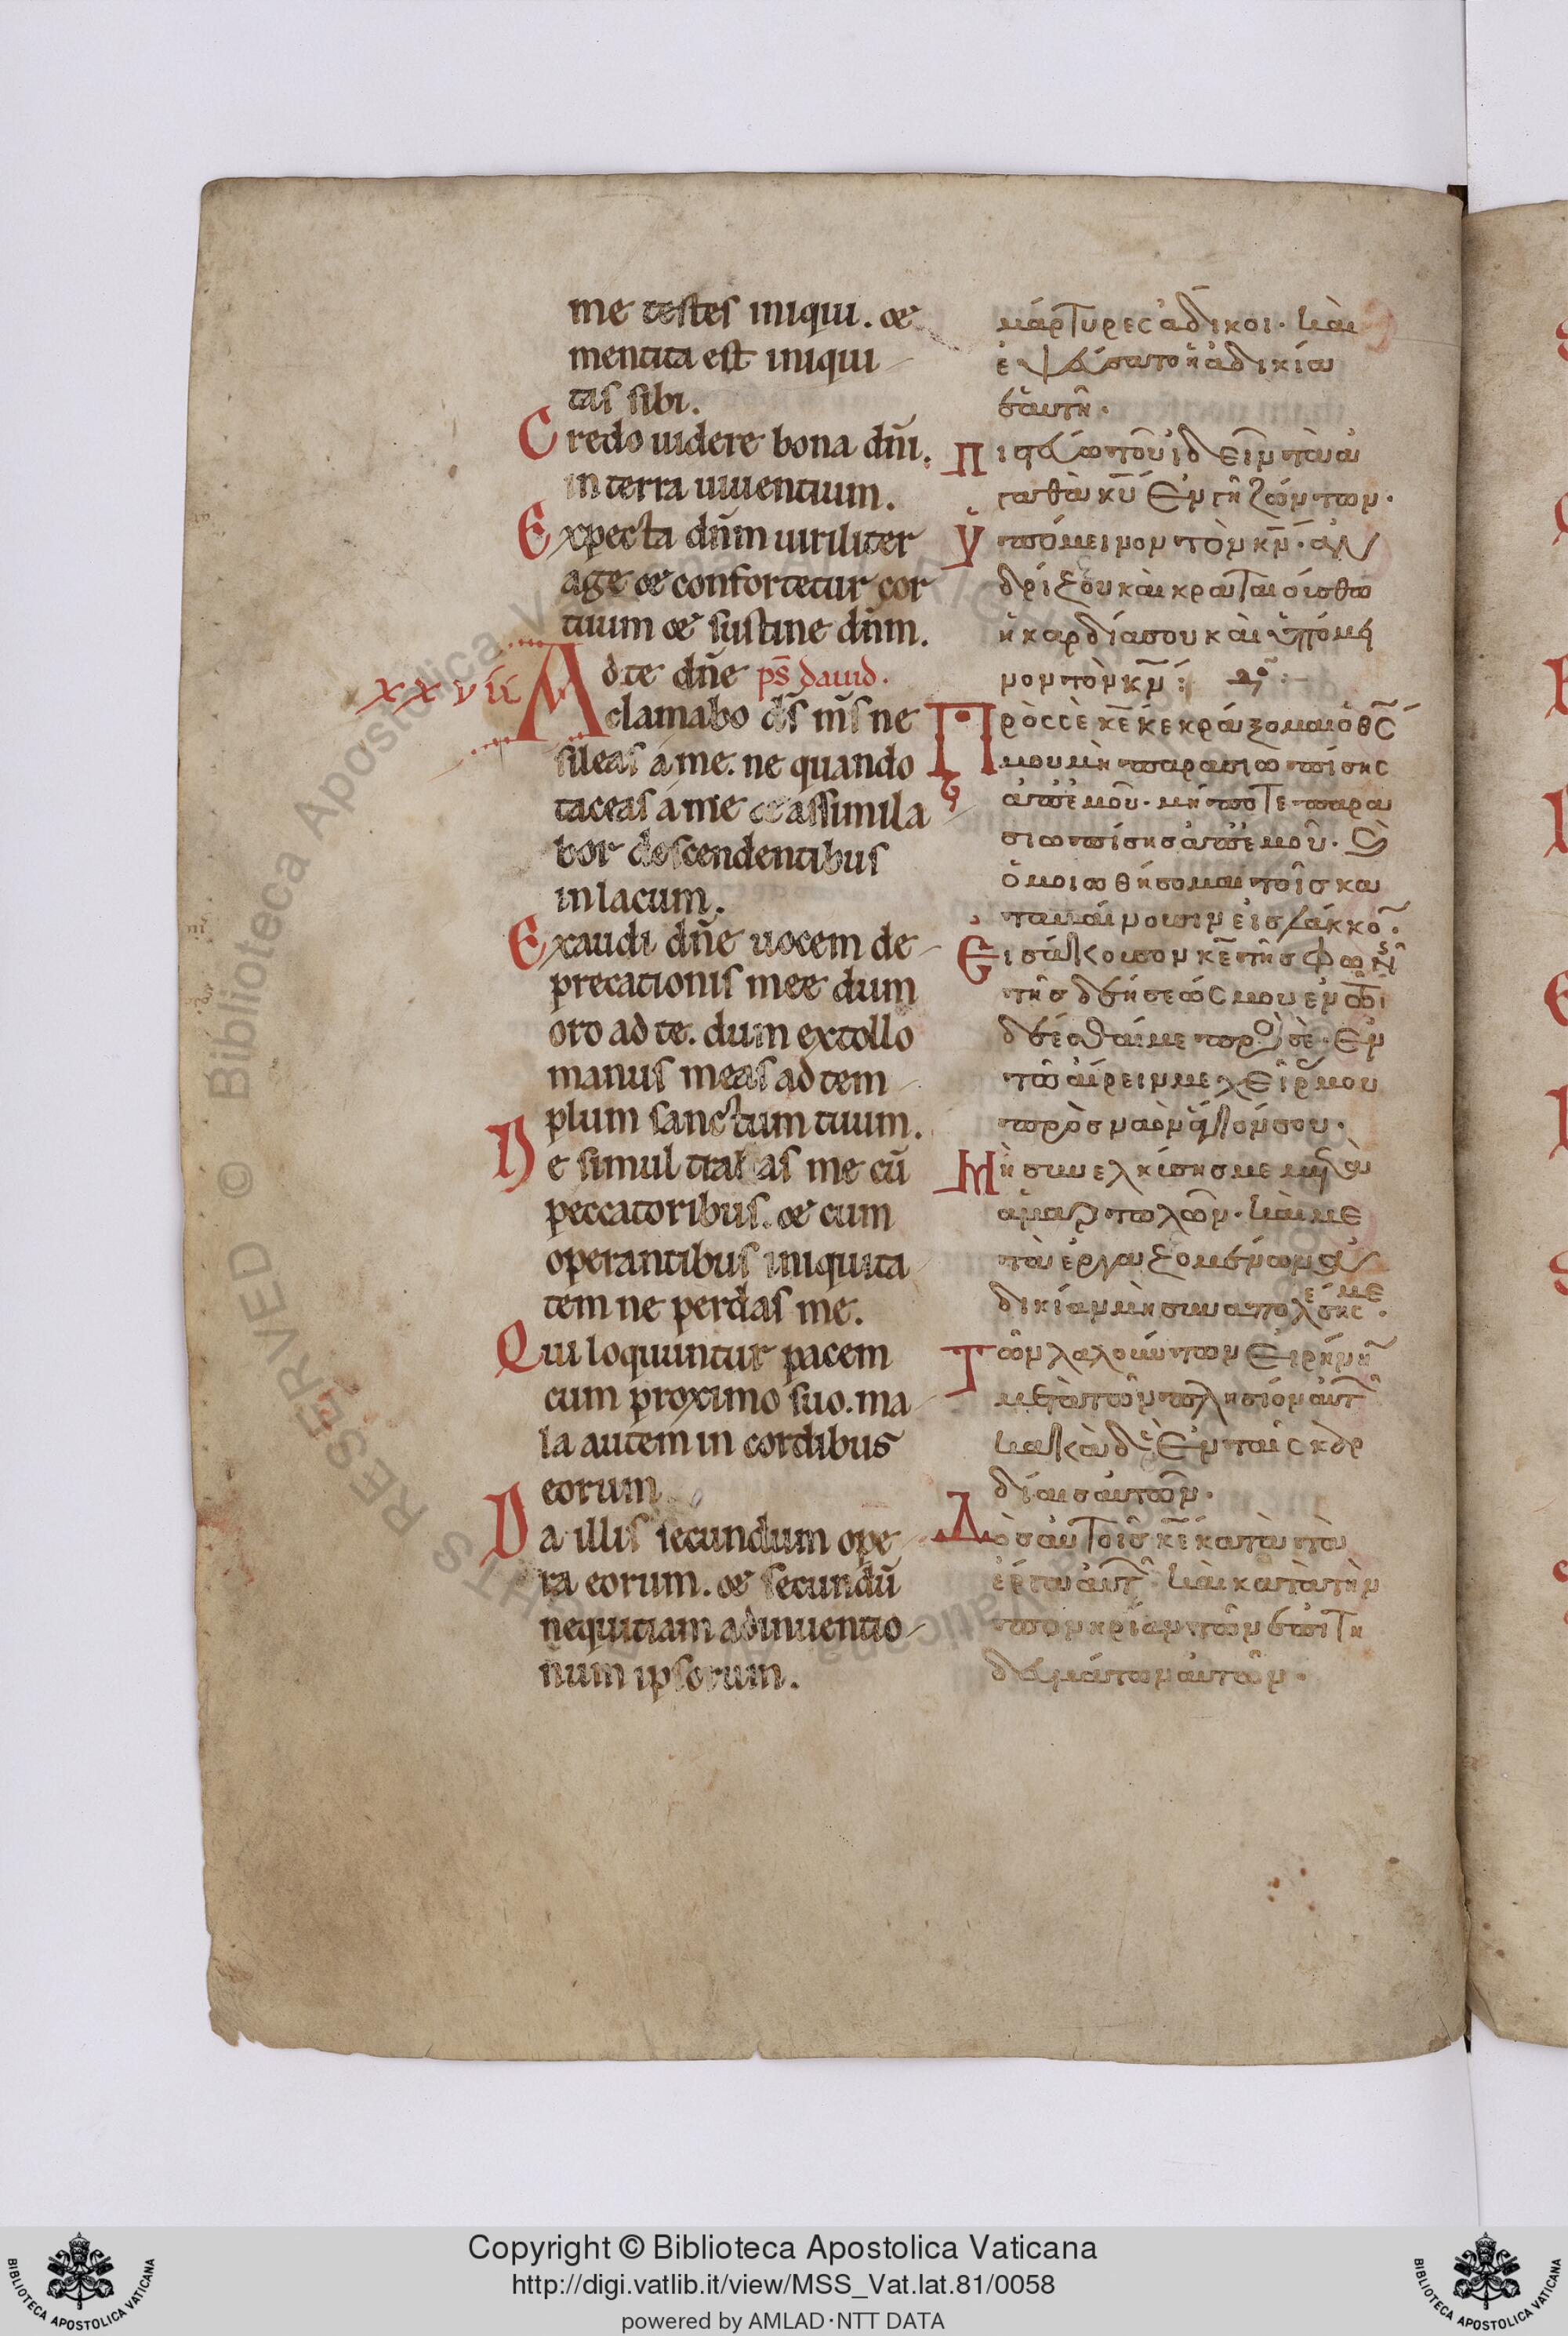 me testes iniqui. &
mentita est iniqui
tas sibi.
Credo uidere bona dn̄i.
in terra uiuentium.
Expecta dn̄m uiriliter
age & confortetur cor
tuum & sustine dn̄m.
xxvii
Ad te dn̄e ps̄ dauid.
clamabo ds̄ ms̄ ne
sileas á me. ne quando
taceas á me & assimila
bor descendentibus
in lacum.
Exaudi dn̄e uocem de
precationis mee dum
oro ad te. dum extollo
manus meas ad tem
plum sanctum tuum.
Ne simul tra as me cū
peccatoribus. & cum
operantibus iniquita
tem ne perdas me.
Qui loquuntur pacem
cum proximo suo. ma
la autem in cordibus
eorum
Da illis secundum ope
ra eorum. & secundū
nequitiam adinuentio
num ipsorum.
μάρτυρες ἀδικοι. και
ἐψεύσατο ἡ ἀδικία
ἑαυτῆ.
Πιστεύω τοῦ ἰδεῖν τὰ ἀ
γαθὰ κ̄ῡ ἐν γῆ ζώντων.
Ὑπόμεινον τὸν κ̄ν̄. ἀν
δρίζου καὶ κραταιούσθω
ἡ καρδία σου καὶ ὑπόμει
νον τὸν κ̄ν̄:
Πρὸς σὲ κ̄ε̄ κεκράξομαι ὁ θ̄ς̄
μου μὴ παρασιωπίσης
ἀπ' ἐμοῦ. μήποτε παρα
σιωπίσης ἀπ' ἐμοῦ. καὶ
ὁμοιωθήσομαι τοῖς κα
ταβαίνουσιν εἰς λάκκον.
Εἰσάκουσον κ̄ε̄ τῆς φωνῆς
τῆς δεήσεώς μου ἐν τῶ
δέεσθαί με πρὸς σὲ. ἐν
τῶ αἴρειν με χεῖράς μου
πρὸς ναὸν ἅγιόν σου.
Μὴ συνελκύσης με μετὰ
ἁμαρτωλῶν. καὶ με
τὰ ἐργαζομένων ἀ
δικίαν μὴ συναπολέσης με.
Τῶν λαλούντων εἰρήνην
μετὰ τῶν πλησίον αὐτῶν
κακὰ δὲ ἐν ταῖς καρ
δίαις αὐτῶν.
Δὸς αὐτοῖς κ̄ε̄ κατὰ τὰ
ἔργα αὐτῶν. καὶ κατὰ τὴν
πονηρίαν τῶν ἐπιτη
δευμάτων αὐτῶν.
Copyright © Biblioteca Apostolica Vaticana
http://digi.vatlib.it/view/MSS_Vat.lat.81/0058
powered by AMLAD·NTT DATA
BIBLIOTECA APOSTOLICA VATICANA
BIBLIOTECA APOSTOLICA VATICANA